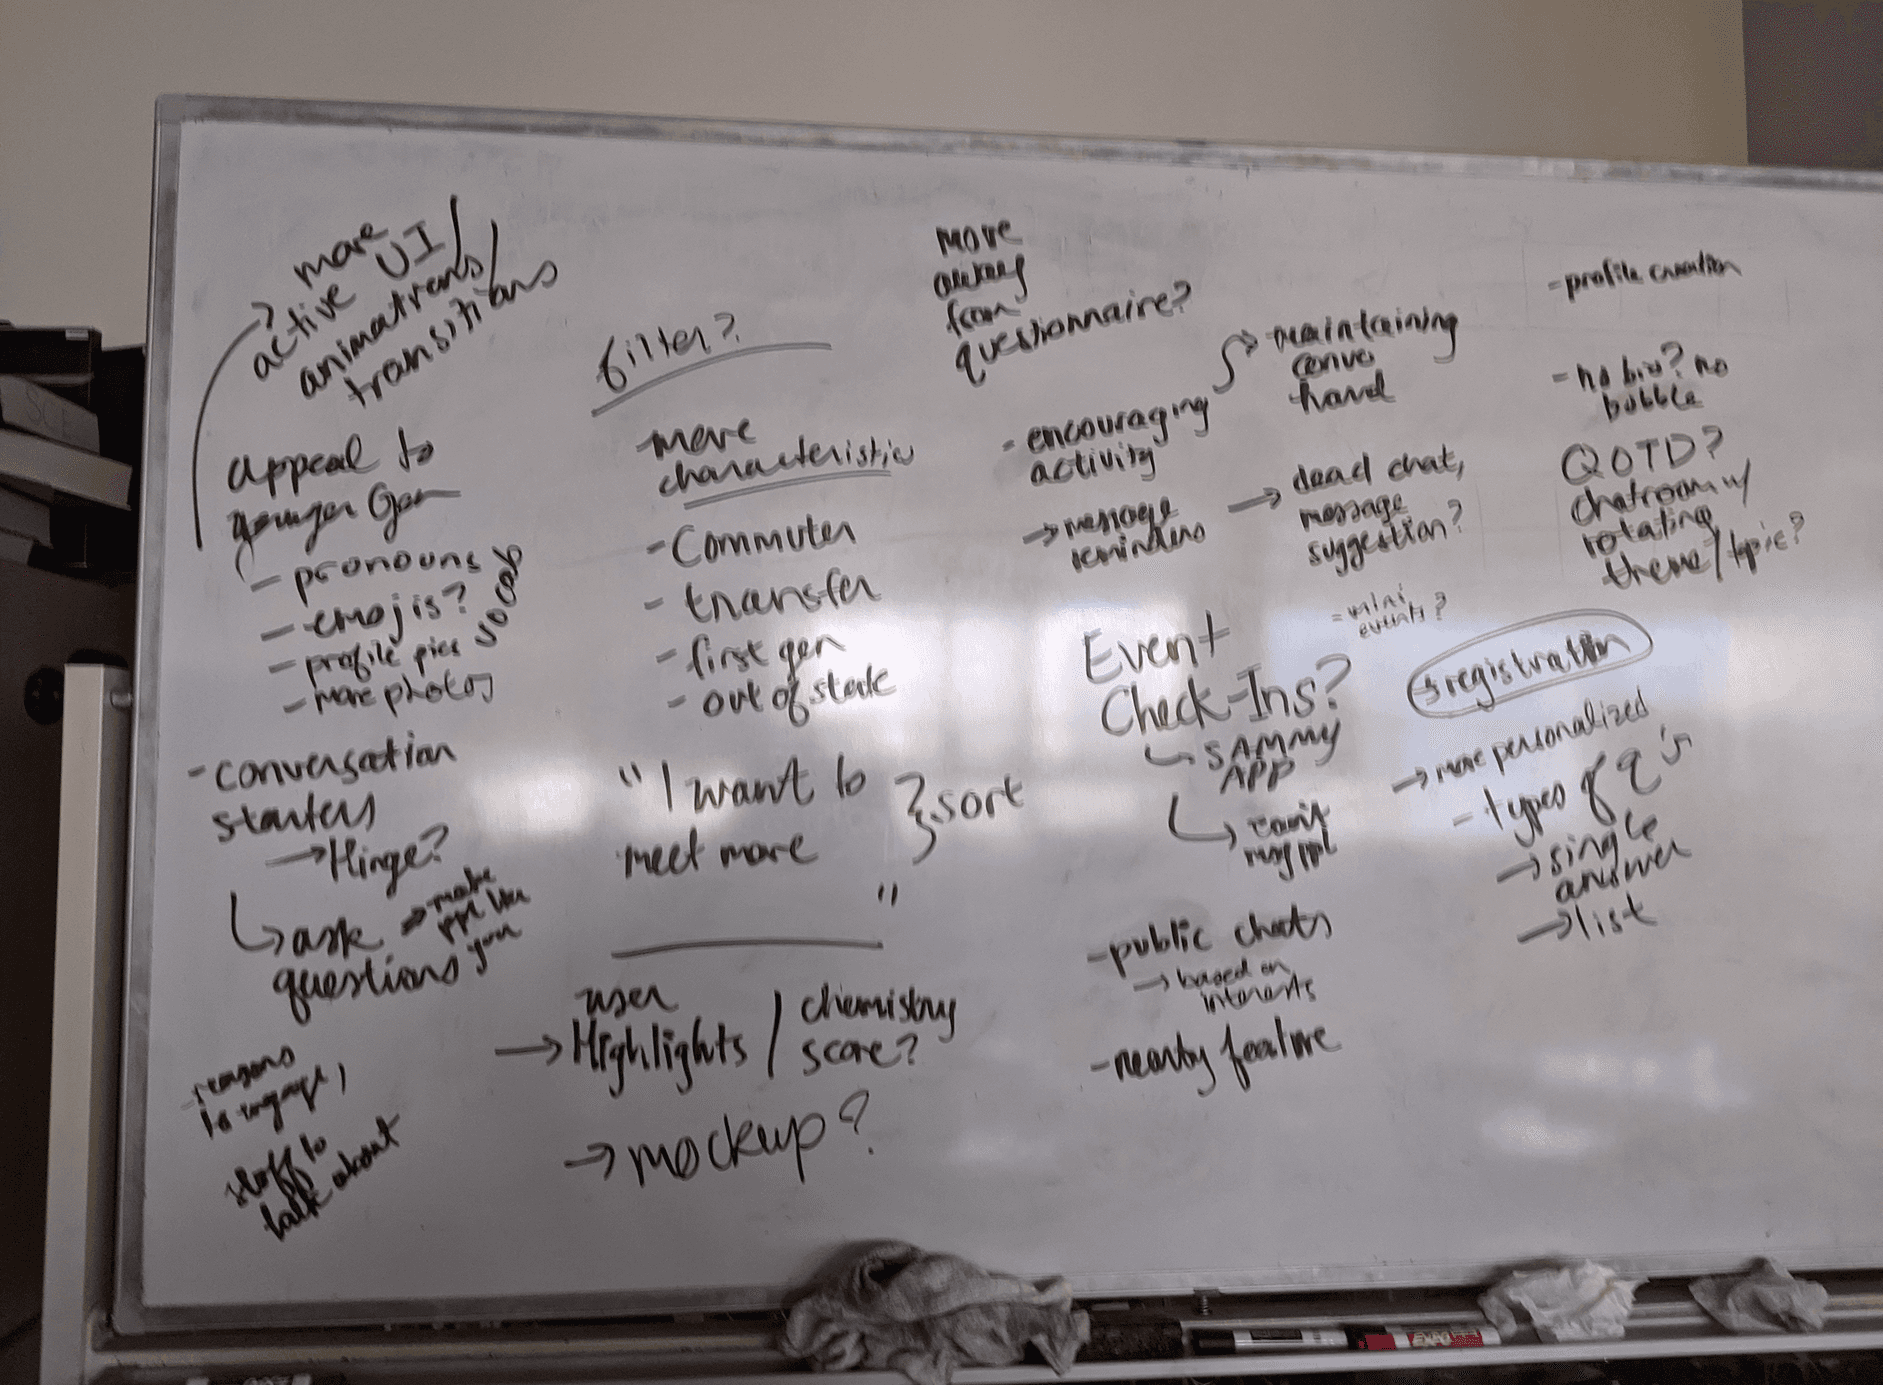 more
active UI/
animations/
transitions
appeal to
younger Gen
- pronouns
- emojis?
- profile pics
- more photos
vocab
- conversation
starters
→ Hinge?
↳ ask
questions
→ make
ppl like
you
- reasons
to engage,
stuff to
talk about
filter?
- more
characteristics
- Commuter
- transfer
- first gen
- out of state
"I want to
meet more
"
} sort
user
→ Highlights / chemistry
score?
→ mockup?
move
away
from
questionnaire?
- encouraging
activity
→ maintaining
convo
hard
→ message
reminders
→ dead chat,
message
suggestion?
- mini
events?
Event
Check-Ins?
↳ SAMMY
APP
↳ can't
msg ppl
- public chats
→ based on
interests
- nearby feature
- profile creation
- no bio? no
bubble
QOTD?
chatroom w/
rotating
theme/topic?
→ registration
→ more personalized
- types of q's
→ single
answer
→ list
SCE
EXPO